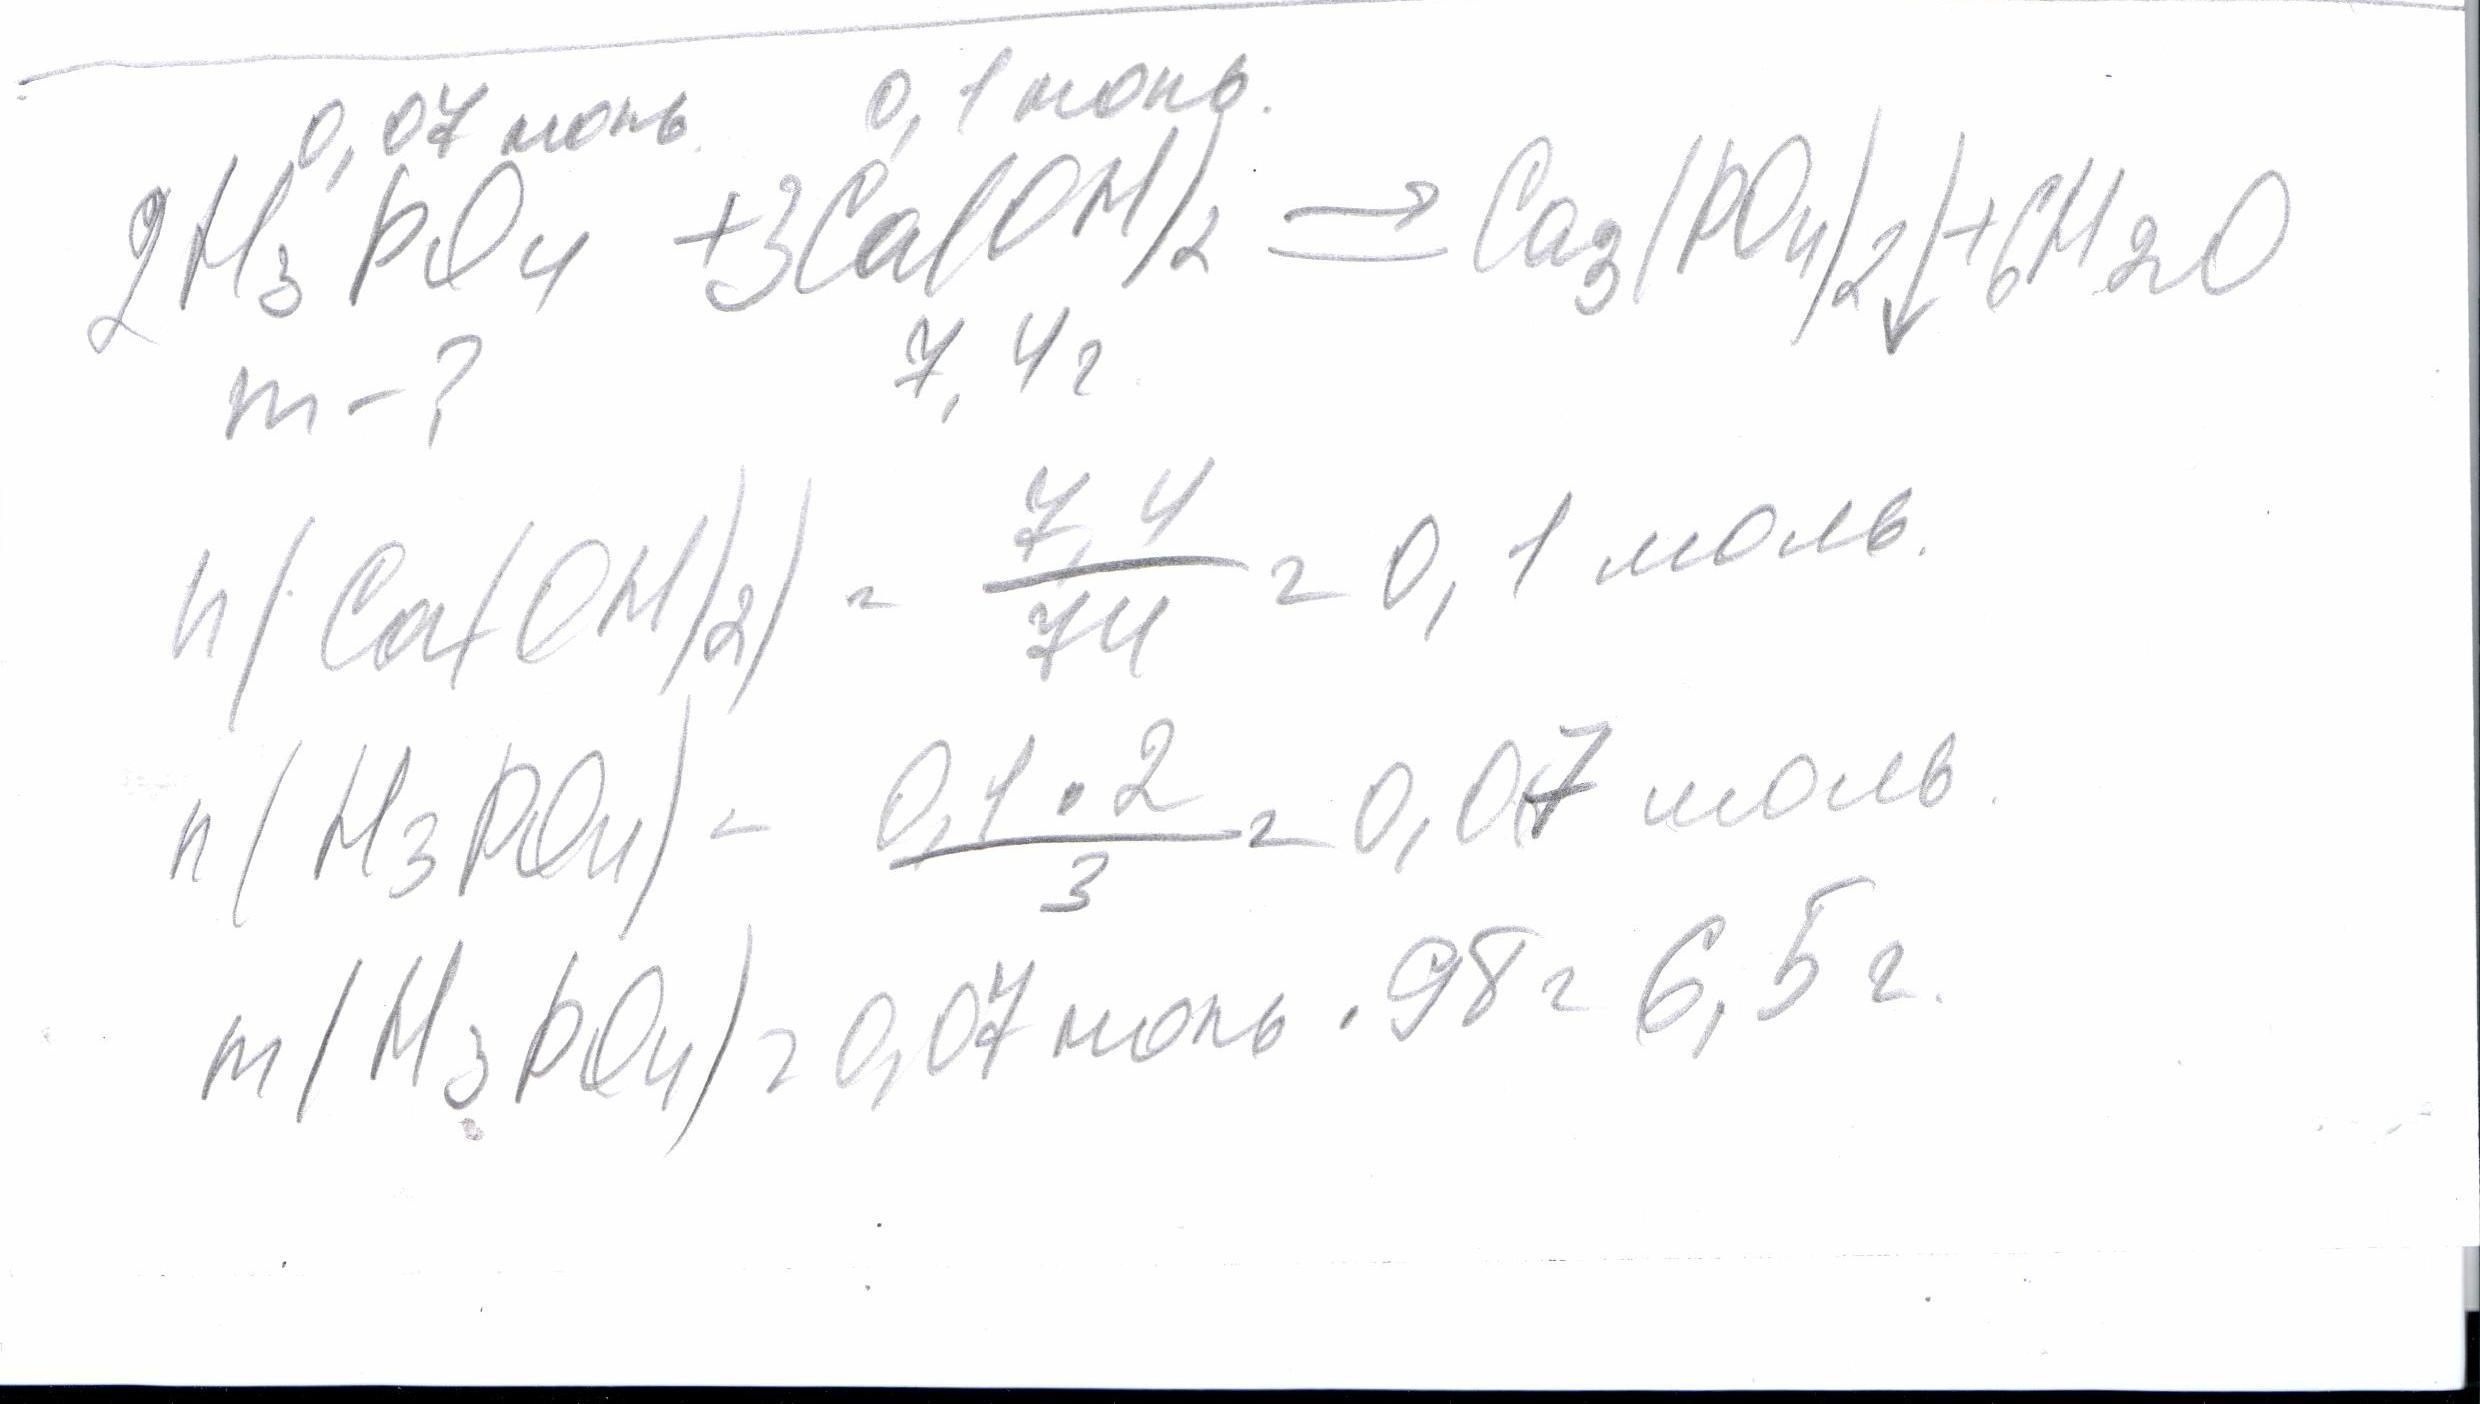 0,07 моль. 0,1 моль.
2H3PO4 + 3Ca(OH)2 ⇒ Ca3(PO4)2↓ + 6H2O
m - ? 7,4г.
n(Ca(OH)2) = 7,4/74 = 0,1 моль.
n(H3PO4) = 0,1 • 2/3 = 0,07 моль.
m(H3PO4) = 0,07 моль • 98 = 6,5 г.